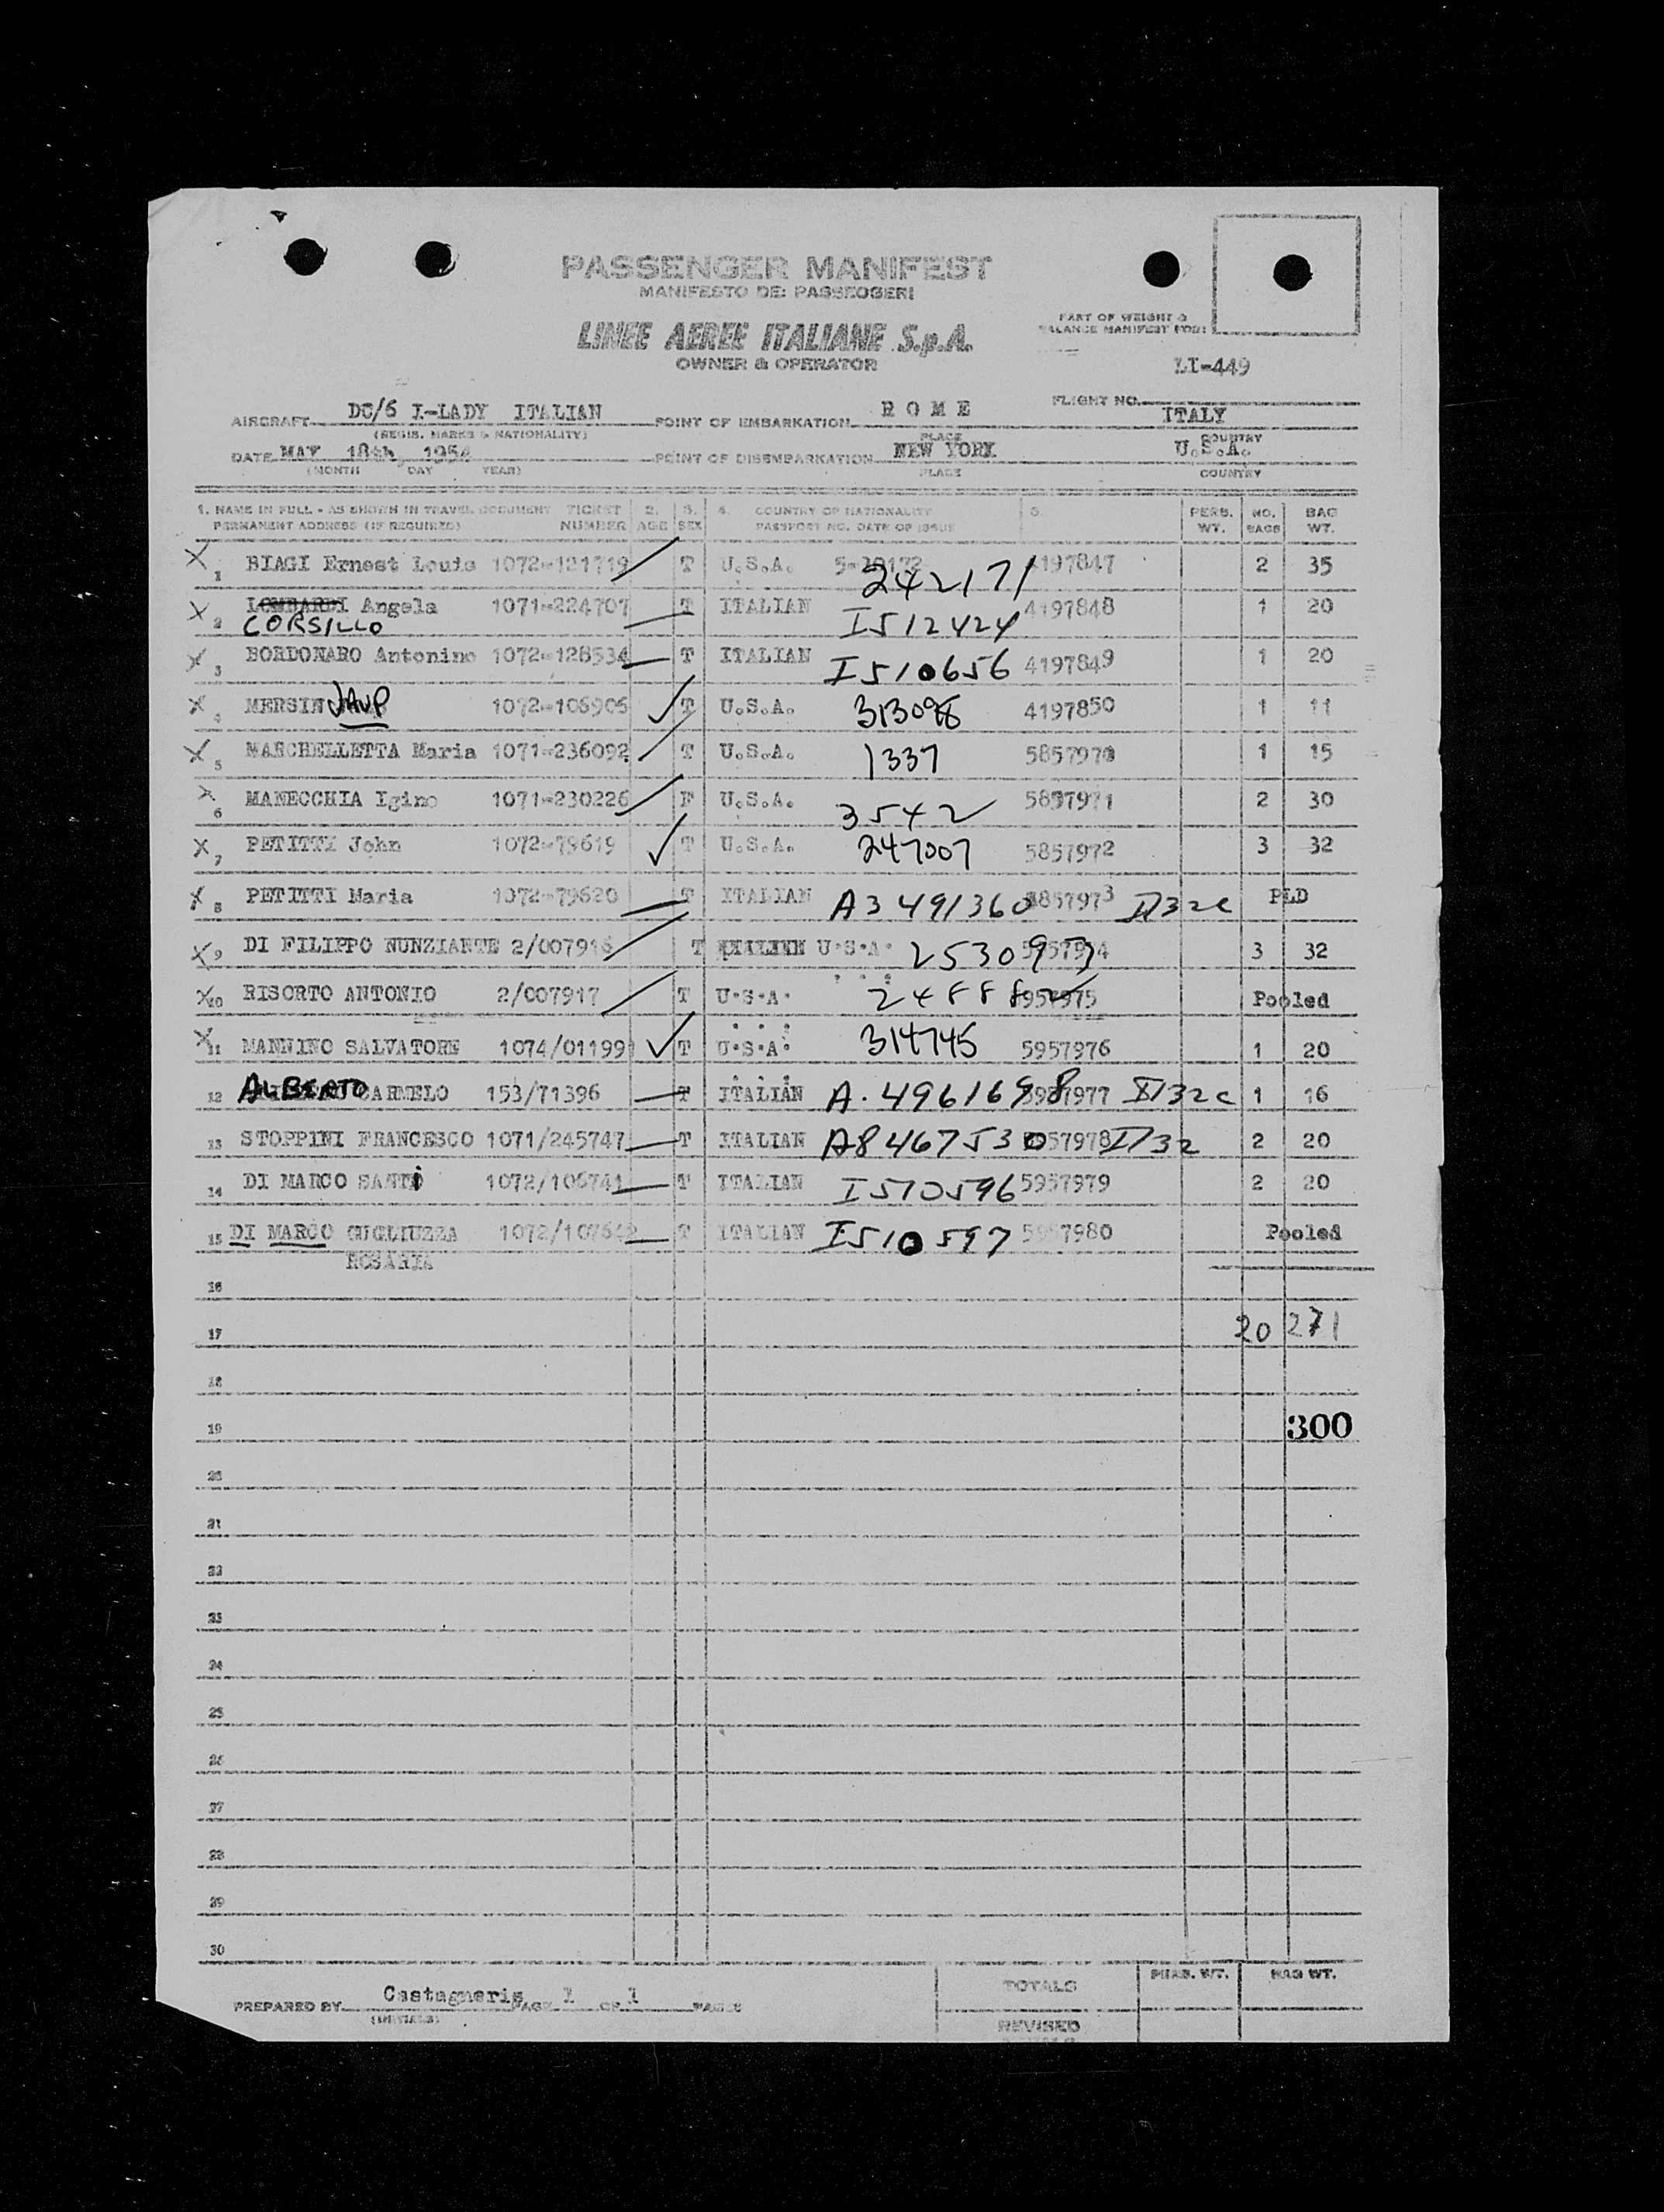 PASSENGER MANIFEST
MANIFESTO DEI PASSEGGERI
LINEE AEREE ITALIANE S.p.A.
OWNER & OPERATOR
PART OF WEIGHT &
BALANCE MANIFEST FORM
LI-449
AIRCRAFT DC/6 I-LADY ITALIAN POINT OF EMBARKATION ROME FLIGHT NO. ITALY
(REGIS. MARKS & NATIONALITY) PLACE COUNTRY
DATE MAY 18th, 1954 POINT OF DISEMBARKATION NEW YORK U.S.A.
(MONTH DAY YEAR) PLACE COUNTRY
1. NAME IN FULL - AS SHOWN IN TRAVEL DOCUMENT TICKET 2. 3. 4. COUNTRY OF NATIONALITY 5. PERS. NO. BAG
PERMANENT ADDRESS (IF REQUIRED) NUMBER AGE SEX PASSPORT NO. DATE OF ISSUE WT. BAGS WT.
X 1 BIAGI Ernest Louis 1072-121719 T U.S.A. 242171 4197847 2 35
X 2 LOMBARDI Angela 1071-224707 T ITALIAN I512424 4197848 1 20
CORSILLO
X 3 BORDONARO Antonino 1072-128534 T ITALIAN I510656 4197849 1 20
X 4 MERSIN 1072-106906 T U.S.A. 4197850 1 11
X 5 MASCHELLETTA Maria 1071-236092 T U.S.A. 1337 5857970 1 15
X 6 MANECCHIA Igino 1071-230226 F U.S.A. 3542 5857971 2 30
X 7 PETITTI John 1072-79619 T U.S.A. 247007 5857972 3 32
X 8 PETITTI Maria 1072-79620 T ITALIAN A3491360 5857973 PLD
X 9 DI FILIPPO NUNZIANTE 2/007916 T U.S.A. 253095 3 32
X 10 RISORTO ANTONIO 2/007917 T U.S.A. Pooled
X 11 MANNINO SALVATORE 1074/01199 T U.S.A. 314745 5957976 1 20
12 ALBERTO CARMELO 153/71396 T ITALIAN A.4961698 5957977 1 16
13 STOPPINI FRANCESCO 1071/245747 T ITALIAN A8467530 5957978 I/32 2 20
14 DI MARCO SANTI 1072/106741 T ITALIAN I510596 5957979 2 20
15 DI MARCO GUGLIUZZA 1072/107642 T ITALIAN I510597 5957980 Pooled
ROSARIA
16
17 20 271
18
19 300
20
21
22
23
24
25
26
27
28
29
30
TOTALS PASS. WT. BAG WT.
PREPARED BY Castagneris PAGE 1 OF 1 PAGES
(INITIALS)
REVISED